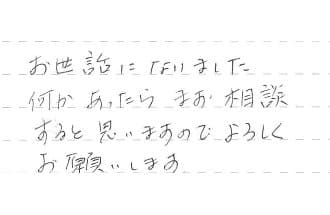 お世話になりました
何かあったら またお 相談
すると思いますので よろしく
お願いします